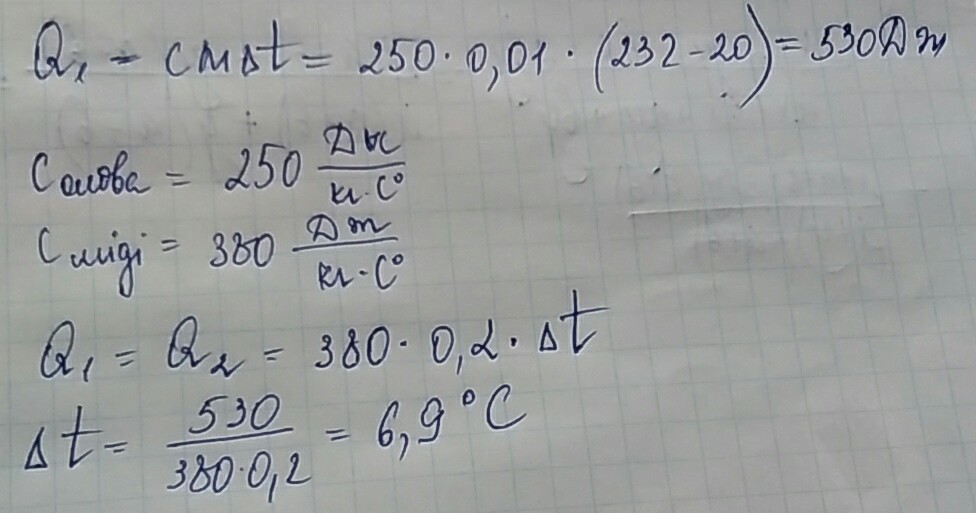 Q₁ = cmΔt = 250·0,01·(232-20)=530Дж
Cолова = 250 Дж/кг·C°
Cміді = 380 Дж/кг·C°
Q₁ = Q₂ = 380·0,2·Δt
Δt = 530/380·0,2 = 6,9°C